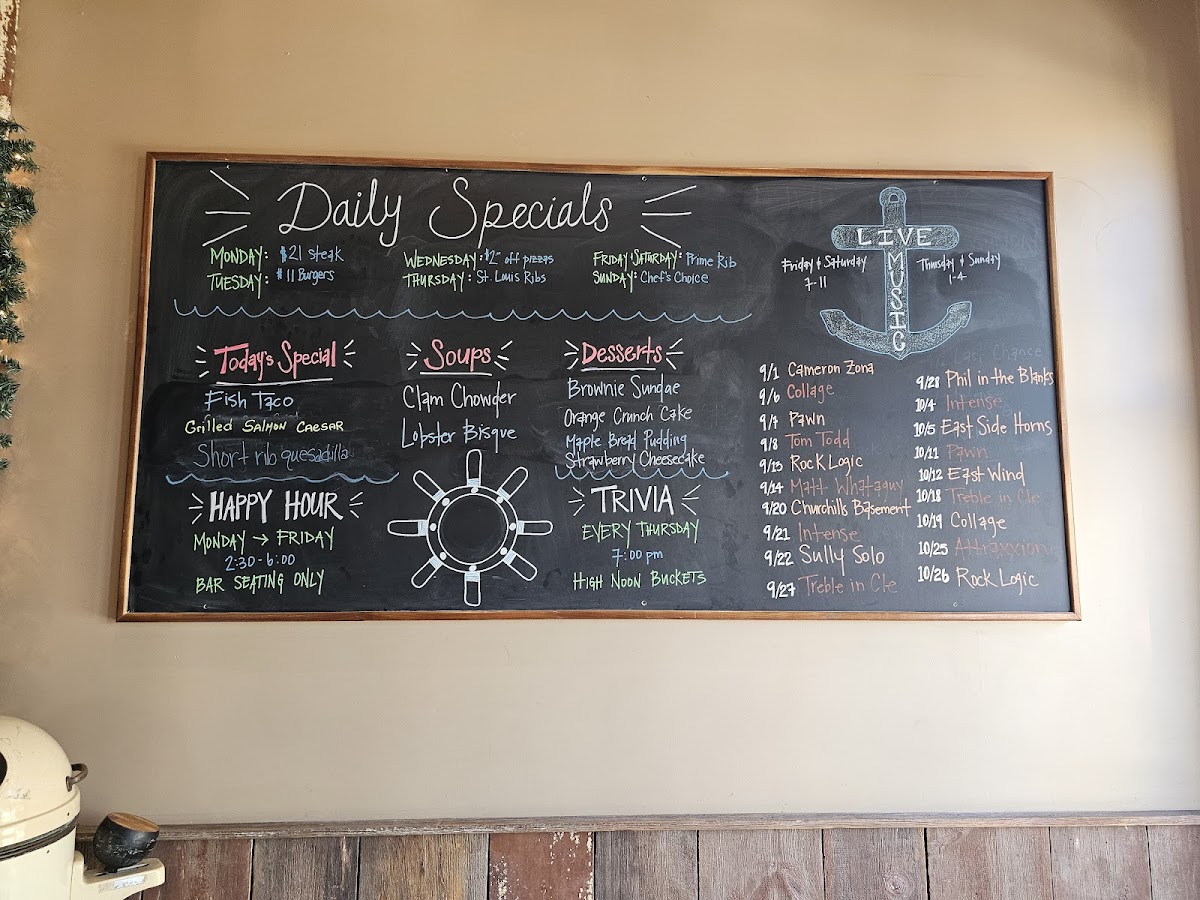 Daily Specials
MONDAY: $21 steak
TUESDAY: $11 Burgers
WEDNESDAY: $2 off pizzas
THURSDAY: St. Louis Ribs
FRIDAY & SATURDAY: Prime Rib
SUNDAY: Chef's Choice
LIVE
MUSIC
Friday & Saturday
7-11
Thursday & Sunday
1-4
Today's Special
Fish Taco
Grilled SALMON CAESAR
Short rib quesadilla
Soups
Clam Chowder
Lobster Bisque
Desserts
Brownie Sundae
Orange Crunch Cake
Maple Bread Pudding
Strawberry Cheesecake
HAPPY HOUR
MONDAY → FRIDAY
2:30-6:00
BAR SEATING ONLY
TRIVIA
EVERY THURSDAY
7:00 pm
HIGH NOON BUCKETS
9/1 Cameron Zona
9/6 Collage
9/7 Pawn
9/8 Tom Todd
9/13 Rock Logic
9/14 Matt Whataguy
9/20 Churchills Basement
9/21 Intense
9/22 Sully Solo
9/27 Treble in Cle
Chance
9/28 Phil in the Blanks
10/4 Intense
10/5 East Side Horns
10/11 Pawn
10/12 East Wind
10/18 Treble in Cle
10/19 Collage
10/25 Attraxxion
10/26 Rock Logic